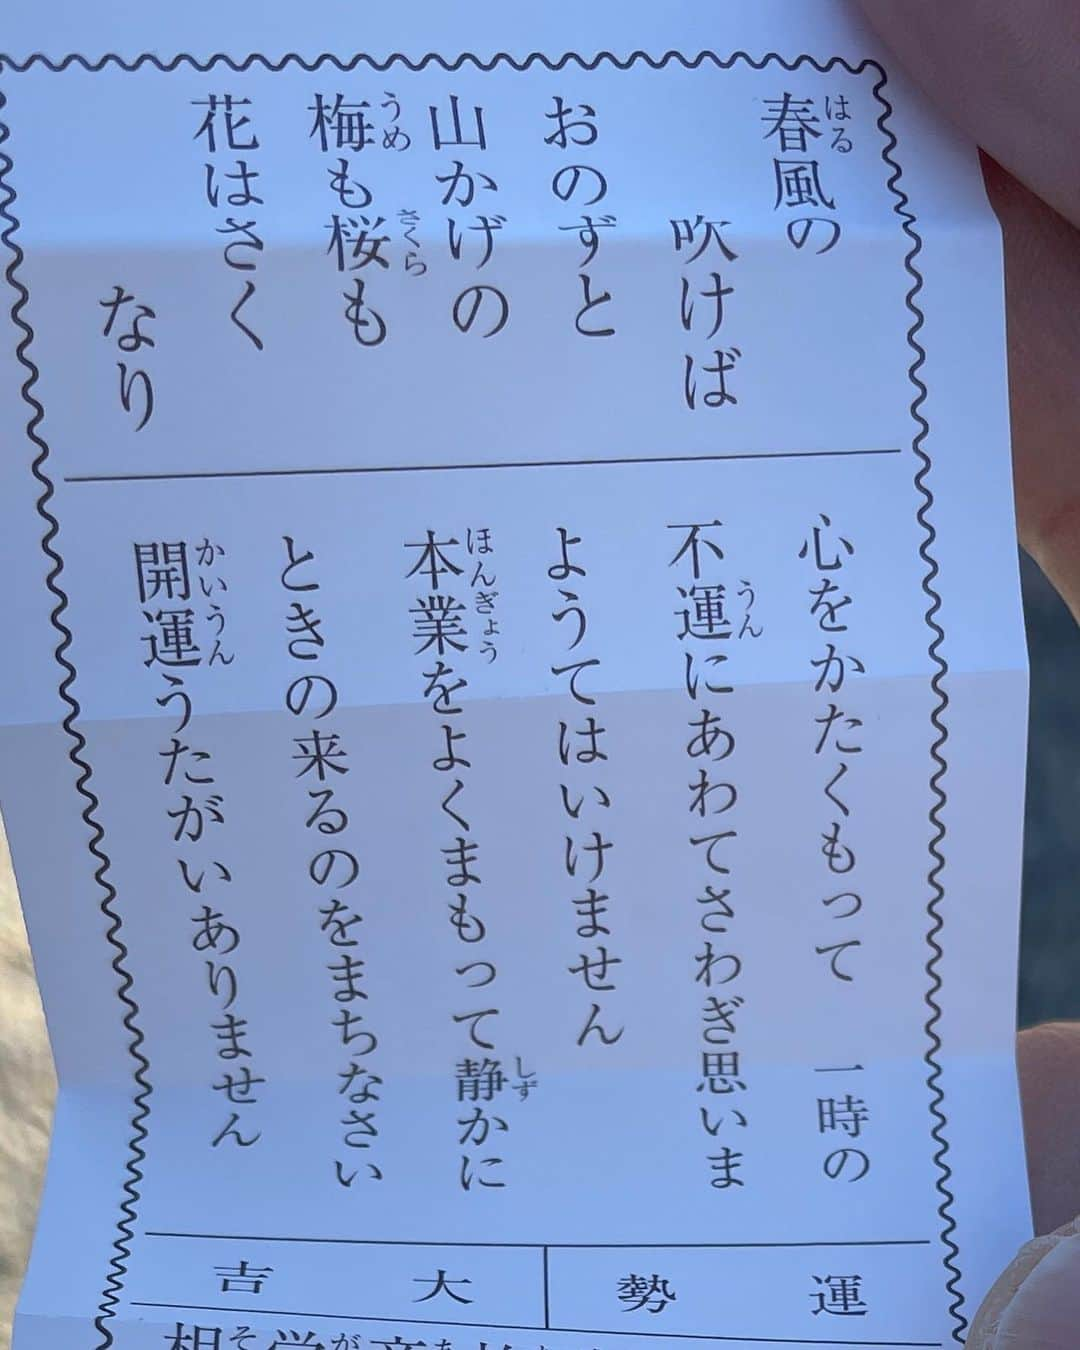 春風の
吹けば
おのずと
山かげの
梅も桜も
花はさく
なり
心をかたくもって 一時の
不運にあわてさわぎ思いま
ようてはいけません
本業をよくまもって静かに
ときの来るのをまちなさい
開運うたがいありません
運勢 大吉